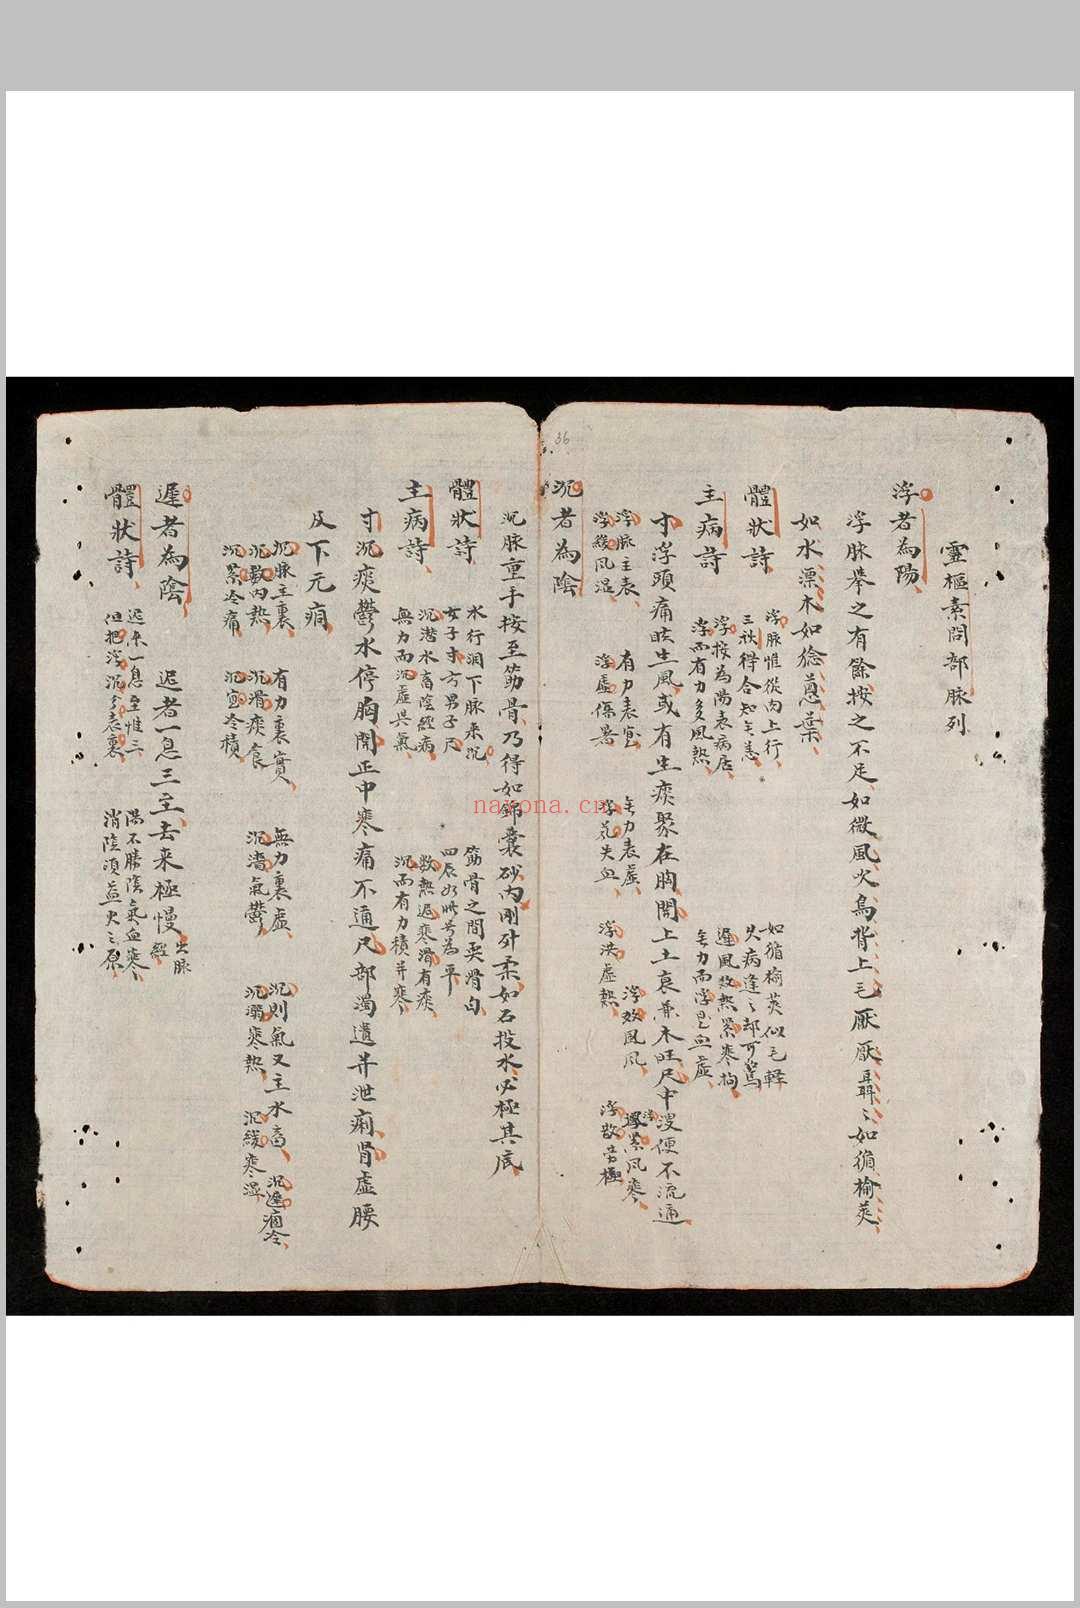 36
靈樞素問部脉列
浮者為陽
浮脉舉之有餘按之不足如微風火鳥背上毛厭厭聶〻如循榆莢
如水漂木如捻葱葉
體狀詩
浮脉惟從肉上行 如循榆莢似毛輕
三秋得合知無恙 久病逢〻却可驚
主病詩
浮按為陽表病居 遲風数熱緊寒拘
浮而有力多風熱 無力而浮是血虛
寸浮頭痛眩生風或有生痰聚在胸関上土衰兼木旺尺中溲便不流通
浮脉主表 有力表實 無力表虛 浮数風 浮緊風寒
浮緩風湿 浮虛傷暑 浮芤失血 浮洪虛熱 浮散勞極
沉者為陰
沉脉重手按至筋骨乃得如錦囊砂内剛外柔如石投水必極其底
體状詩
水行潤下脉来沉 筋骨之間耎滑匀
女子寸方男子尺 四辰如此号為平
主病詩
沉潜水畜陰經病 数熱遲寒滑有痰
無力而沉虛與氣 沉而有力積并寒
寸沉痰鬱水停胸関主中寒痛不通尺部濁遺并泄痢腎虛腰
及下元痌
沉脉主裏 有力裏實 無力裏虛 沉則氣又主水畜 沉遲痼冷
沉数内熱 沉滑痰食 沉濇氣鬱 沉弱寒熱 沉緩寒湿
沉緊冷痛 沉宲冷積
遲者為陰 迟者一息三至去来極慢
體状詩
迟来一息至惟三 陽不勝陰氣血寒
但把浮沉分表裏 消陰須益火之原
naxona.cn